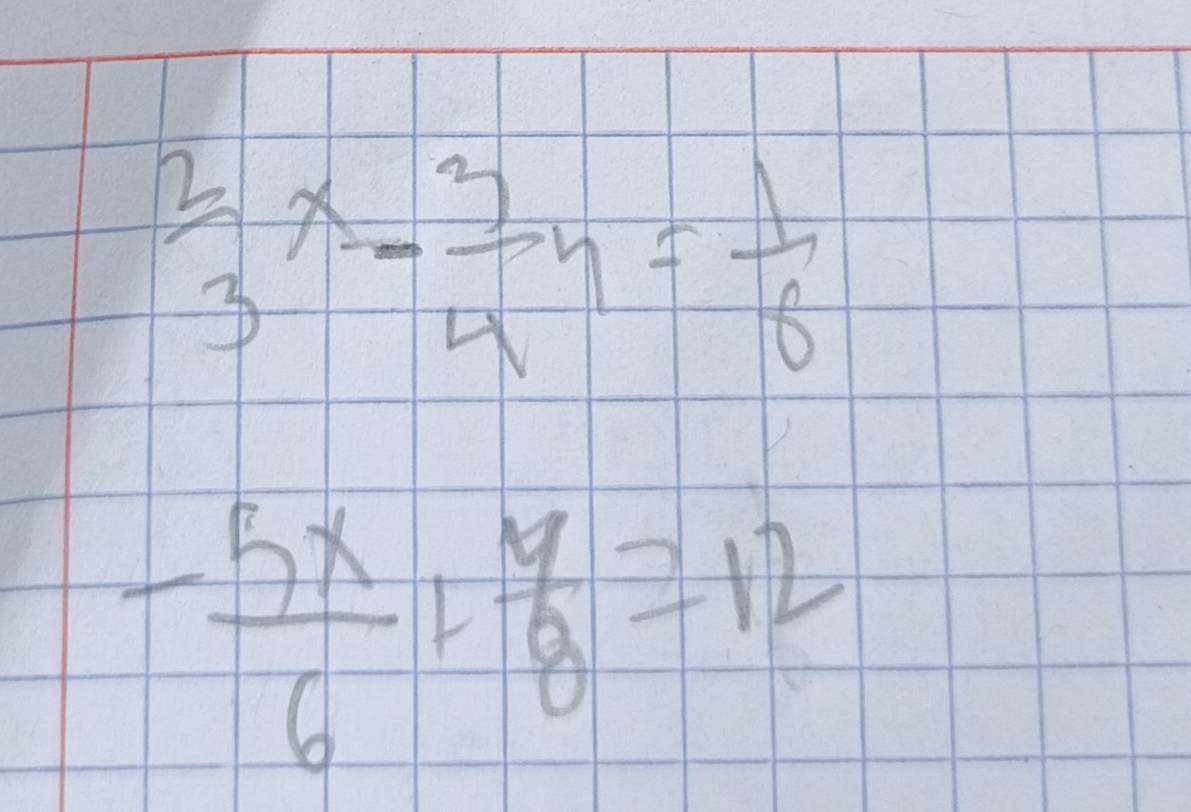 2/3 x - 3/4 y = 1/8
- 5x/6 + y/8 = 12